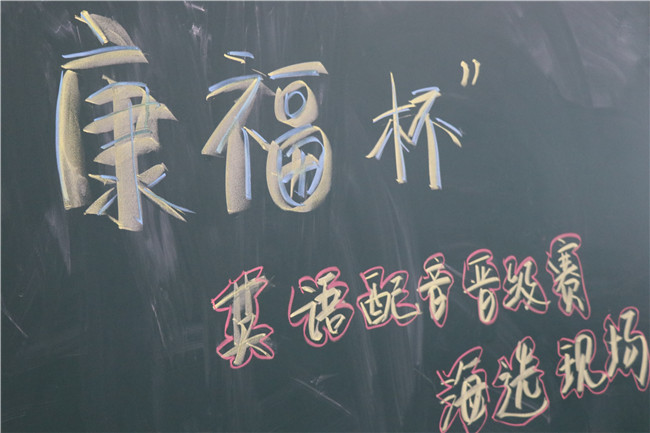 康福杯”
英语配音晋级赛
海选现场